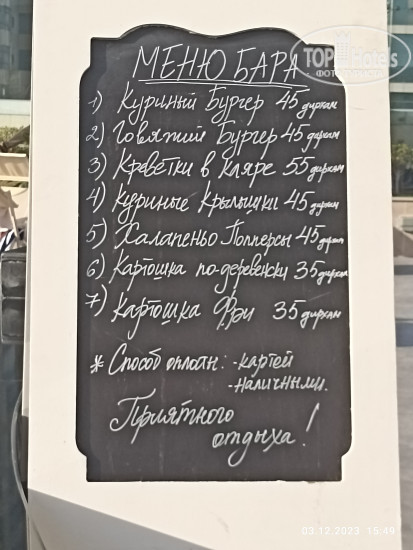 TOPHotels
ФОТО ТУРИСТА
МЕНЮ БАРА
1) Куриный Бургер 45 дирхам
2) Говяжий Бургер 45 дирхам
3) Креветки в кляре 55 дирхам
4) Куриные Крылышки 45 дирхам
5) Халапеньо Попперсы 45 дирхам
6) Картошка по-деревенски 35 дирхам
7) Картошка Фри 35 дирхам
* Способ оплаты: -картой
-наличными.
Приятного
отдыха!
03.12.2023 15:49